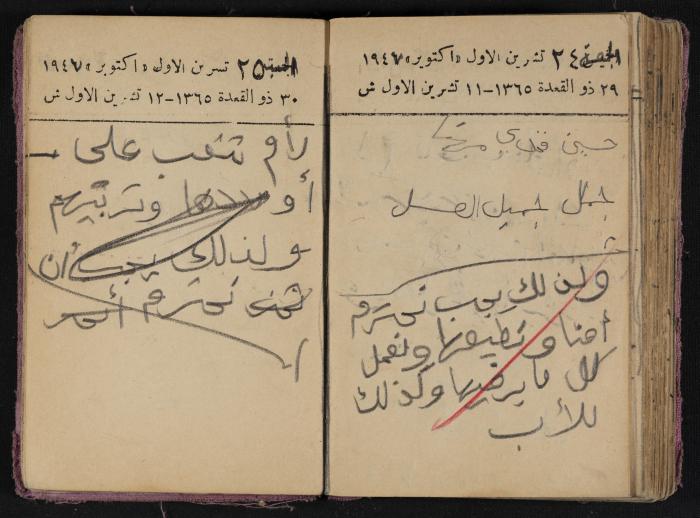 الخميس ٢٤ تشرين الاول «اكتوبر» ١٩٤٧
٢٩ ذو القعدة ١٣٦٥–١١ تشرين الاول ش
حسين
جمال جميل
ولذلك يجب نحترم
أمنا و نطيعها ونعمل
كل ما يرضيها وكذلك
للأب
الجمعة ٢٥ تشرين الاول «اكتوبر» ١٩٤٧
٣٠ ذو القعدة ١٣٦٥–١٢ تشرين الاول ش
لأم تتعب على
أولادها وتربيهم
ولذلك يجب أن
نحترم